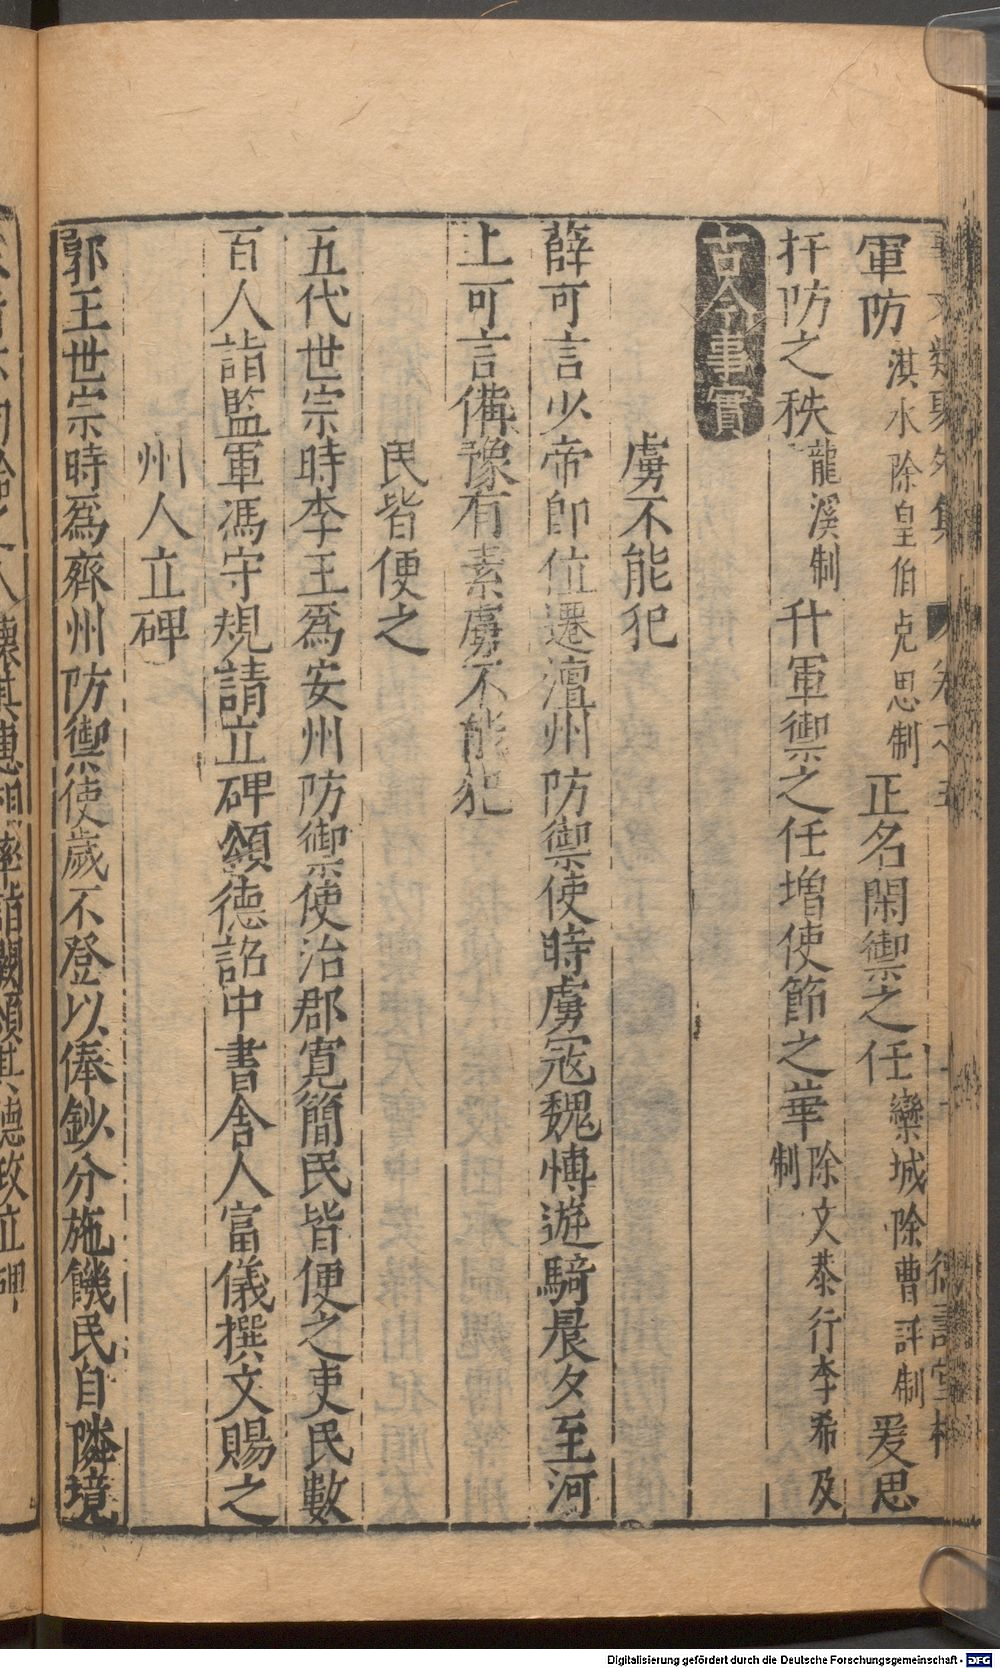 軍防淇水除皇伯克思制正名閑禦之任欒城除曹評制爰思
扞防之秩龍溪制升軍禦之任增使節之華除文㳟行李希及制
古今事實
虜不能犯
薛可言少帝即位遷澶州防禦使時虜寇魏博遊騎晨夕至河
上可言備豫有素虜不能犯
民皆便之
五代世宗時李王爲安州防禦使治郡寬簡民皆便之吏民數
百人詣監軍馮守規請立碑頌德詔中書舍人富儀撰文賜之
州人立碑
郭王世宗時爲齊州防禦使歲不登以俸鈔分施饑民自隣境
Digitalisierung gefördert durch die Deutsche Forschungsgemeinschaft - DFG